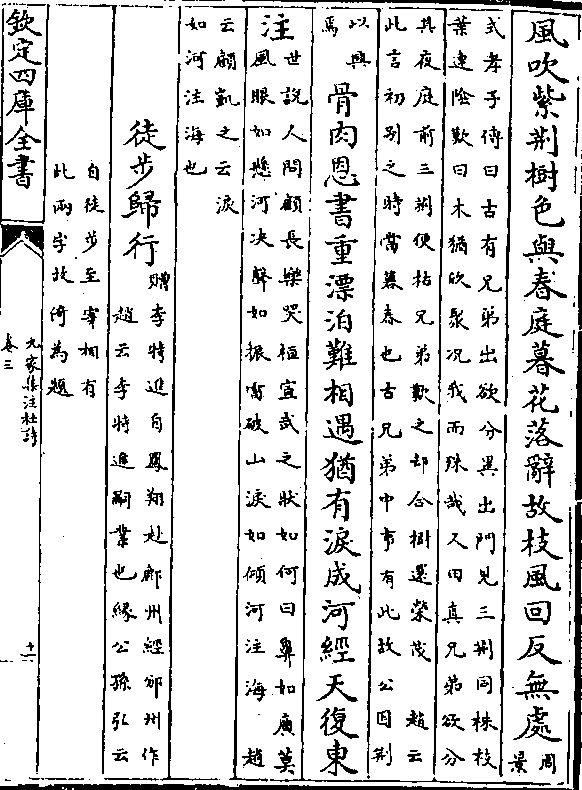 風吹紫荆樹色與春庭暮花落辭故枝風回反無處周景
式孝子傳曰古有兄弟出欲分異出門見三荆同株枝
葉連陰歎曰木猶欣聚况我而殊哉又田真兄弟欲分
其夜庭前三荆便枯兄弟歎之却合樹還榮茂　趙云
此言初别之時當暮春也古兄弟中事有此故公因荆
以興
焉
骨肉恩書重漂泊難相遇猶有淚成河經天復東
注世説人問顧長樂哭桓宣武之狀如何曰鼻如廣莫
風眼如懸河决聲如振雷破山淚如傾河注海　趙
云顧凱之云淚
如河注海也
徒步歸行贈李特進自鳳翔赴鄜州經邠州作
趙云李特進嗣業也緣公孫弘云
自徒步至宰相有
此兩字故倚為題
欽定四庫全書
九家集注杜詩
卷三
十一